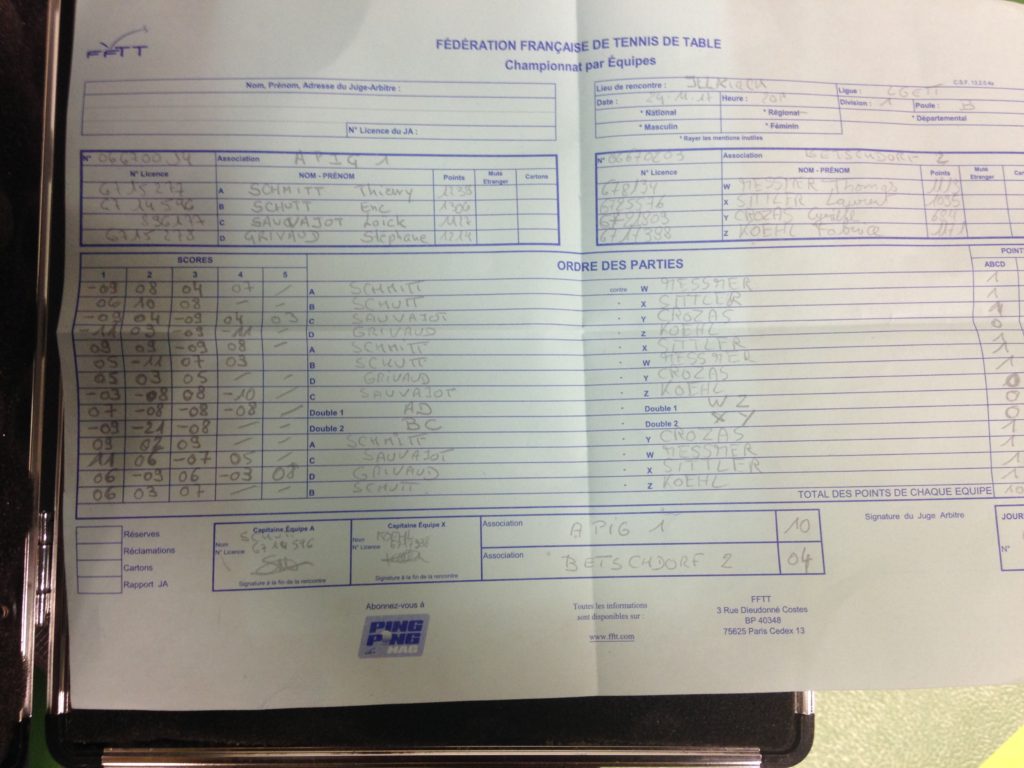 FFTT
FÉDÉRATION FRANÇAISE DE TENNIS DE TABLE
Championnat par Équipes
Nom, Prénom, Adresse du Juge-Arbitre :
N° Licence du JA :
Lieu de rencontre : ILLKIRCH Ligue : LGETT
Date : 24.11.17 Heure : 20H Division : 1 Poule : B
* National * Régional * Départemental
* Masculin * Féminin
* Rayer les mentions inutiles
N° 06670034 Association APIG 1
N° Licence NOM - PRÉNOM Points Muts Etranger Cartons
6715277 A SCHMITT Thierry
6714596 B SCHUTT Eric 1300
C SAUVAJOT Loick
6715278 D GRIVAUD Stéphane 1214
N° 06670203 Association BETSCHDORF 2
N° Licence NOM - PRÉNOM Points Muts Etranger Cartons
W MESSMER Thomas
X SITTLER Laurent 1035
Y CROZAS
6717398 Z KOEHL Fabrice
SCORES ORDRE DES PARTIES POINT
1 2 3 4 5 ABCD
-09 08 04 07 / A SCHMITT contre W MESSMER 1
06 10 08 / / B SCHUTT - X SITTLER 1
-09 04 -09 04 03 C SAUVAJOT - Y CROZAS 1
-11 03 -09 -11 / D GRIVAUD - Z KOEHL 0
09 09 -09 08 / A SCHMITT - X SITTLER 1
05 -11 07 03 / B SCHUTT - W MESSMER 1
05 03 05 / / D GRIVAUD - Y CROZAS 1
-03 -08 08 -10 / C SAUVAJOT - Z KOEHL 0
07 -08 -08 -08 / Double 1 AD Double 1 WZ 0
-09 -21 -08 / / Double 2 BC Double 2 XY 0
09 02 09 / / A SCHMITT - Y CROZAS 1
11 06 -07 05 / C SAUVAJOT - W MESSMER 1
06 -09 06 -03 08 D GRIVAUD - X SITTLER 1
06 03 07 / / B SCHUTT - Z KOEHL 1
TOTAL DES POINTS DE CHAQUE EQUIPE 10
Réserves
Réclamations
Cartons
Rapport JA
Capitaine Équipe A
Nom SCHUTT
N° Licence 6714596
Signature à la fin de la rencontre
Capitaine Équipe X
Nom KOEHL
N° Licence 6717398
Signature à la fin de la rencontre
Association APIG 1 10
Association BETSCHDORF 2 04
Signature du Juge Arbitre
JOUR
N°
Abonnez-vous à
PING PONG MAG
Toutes les informations
sont disponibles sur :
www.fftt.com
FFTT
3 Rue Dieudonné Costes
BP 40348
75625 Paris Cedex 13